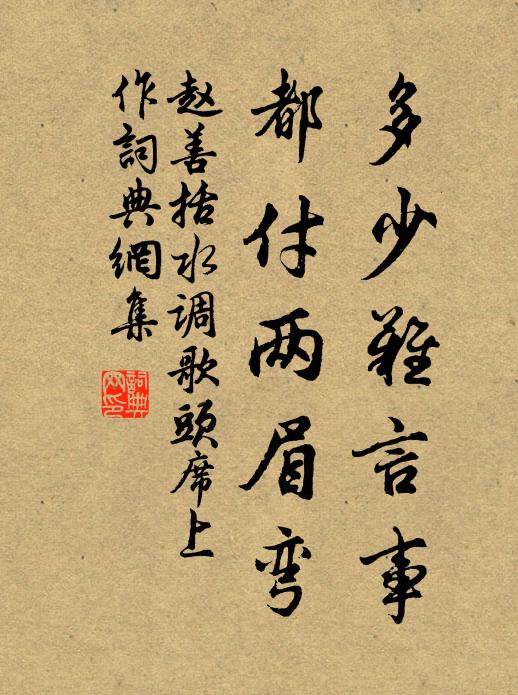 多少難言事
都付两眉弯
赵善括水调歌頭席上
作詞典網集
詞典網印